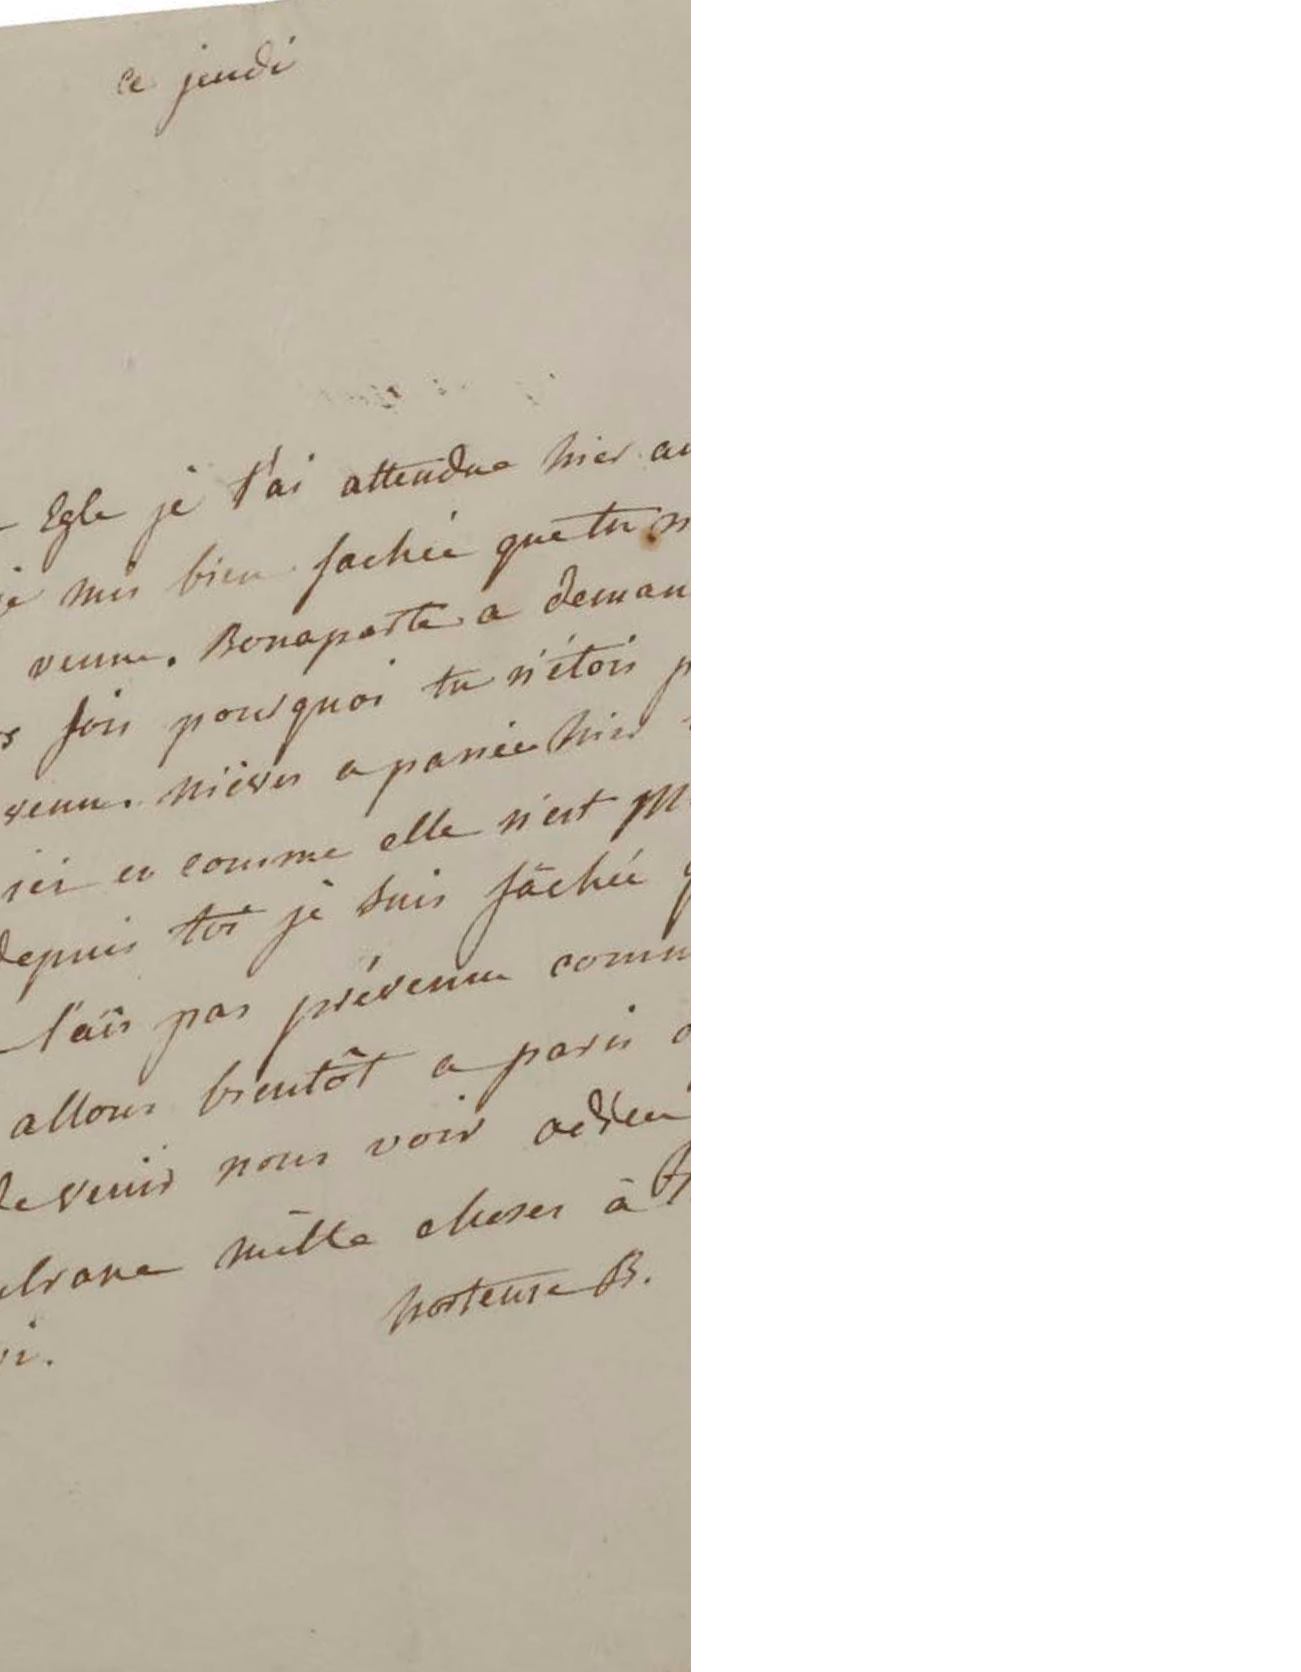 ce jeudi
Egle je t'ai attendue hier au
je suis bien fachée que tu n
venue. Bonaparte a deman
fois pourquoi tu n'étois p
venue. nièves a passée hier
ici et comme elle n'est
depuis toi je suis fâchée q
t'ais pas prévenue comm
allons bientôt a paris
de venir nous voir adieu
mille choses à
hortense B.